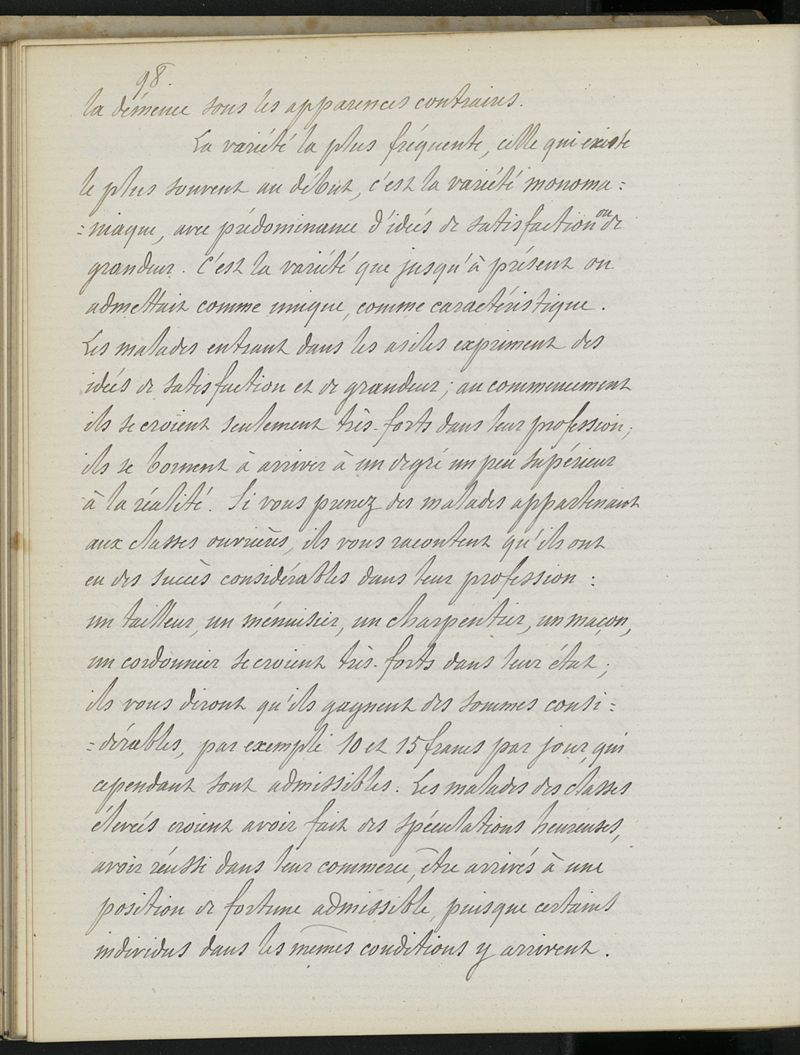 98.
la démence sous les apparences contraires.
La variété la plus fréquente, celle qui existe
le plus souvent au début, c'est la variété monoma=
=niaque, avec prédominance d'idées de satisfaction ou de
grandeur. C'est la variété que jusqu'à présent on
admettait comme unique, comme caractéristique.
Les malades entrant dans les asiles expriment des
idées de satisfaction et de grandeur; au commencement
ils se croient seulement très-forts dans leur profession;
ils se bornent à arriver à un degré un peu supérieur
à la réalité. Si vous prenez des malades appartenant
aux classes ouvrières, ils vous racontent qu'ils ont
eu des succès considérables dans leur profession:
un tailleur, un ménuisier, un charpentier, un maçon,
un cordonnier se croient très-forts dans leur état;
ils vous diront qu'ils gagnent des sommes consi=
=dérables, par exemple 10 et 15 francs par jour, qui
cependant sont admissibles. Les malades des classes
élevées croient avoir fait des spéculations heureuses,
avoir réussi dans leur commerce, être arrivés à une
position de fortune admissible, puisque certains
individus dans les mêmes conditions y arrivent.